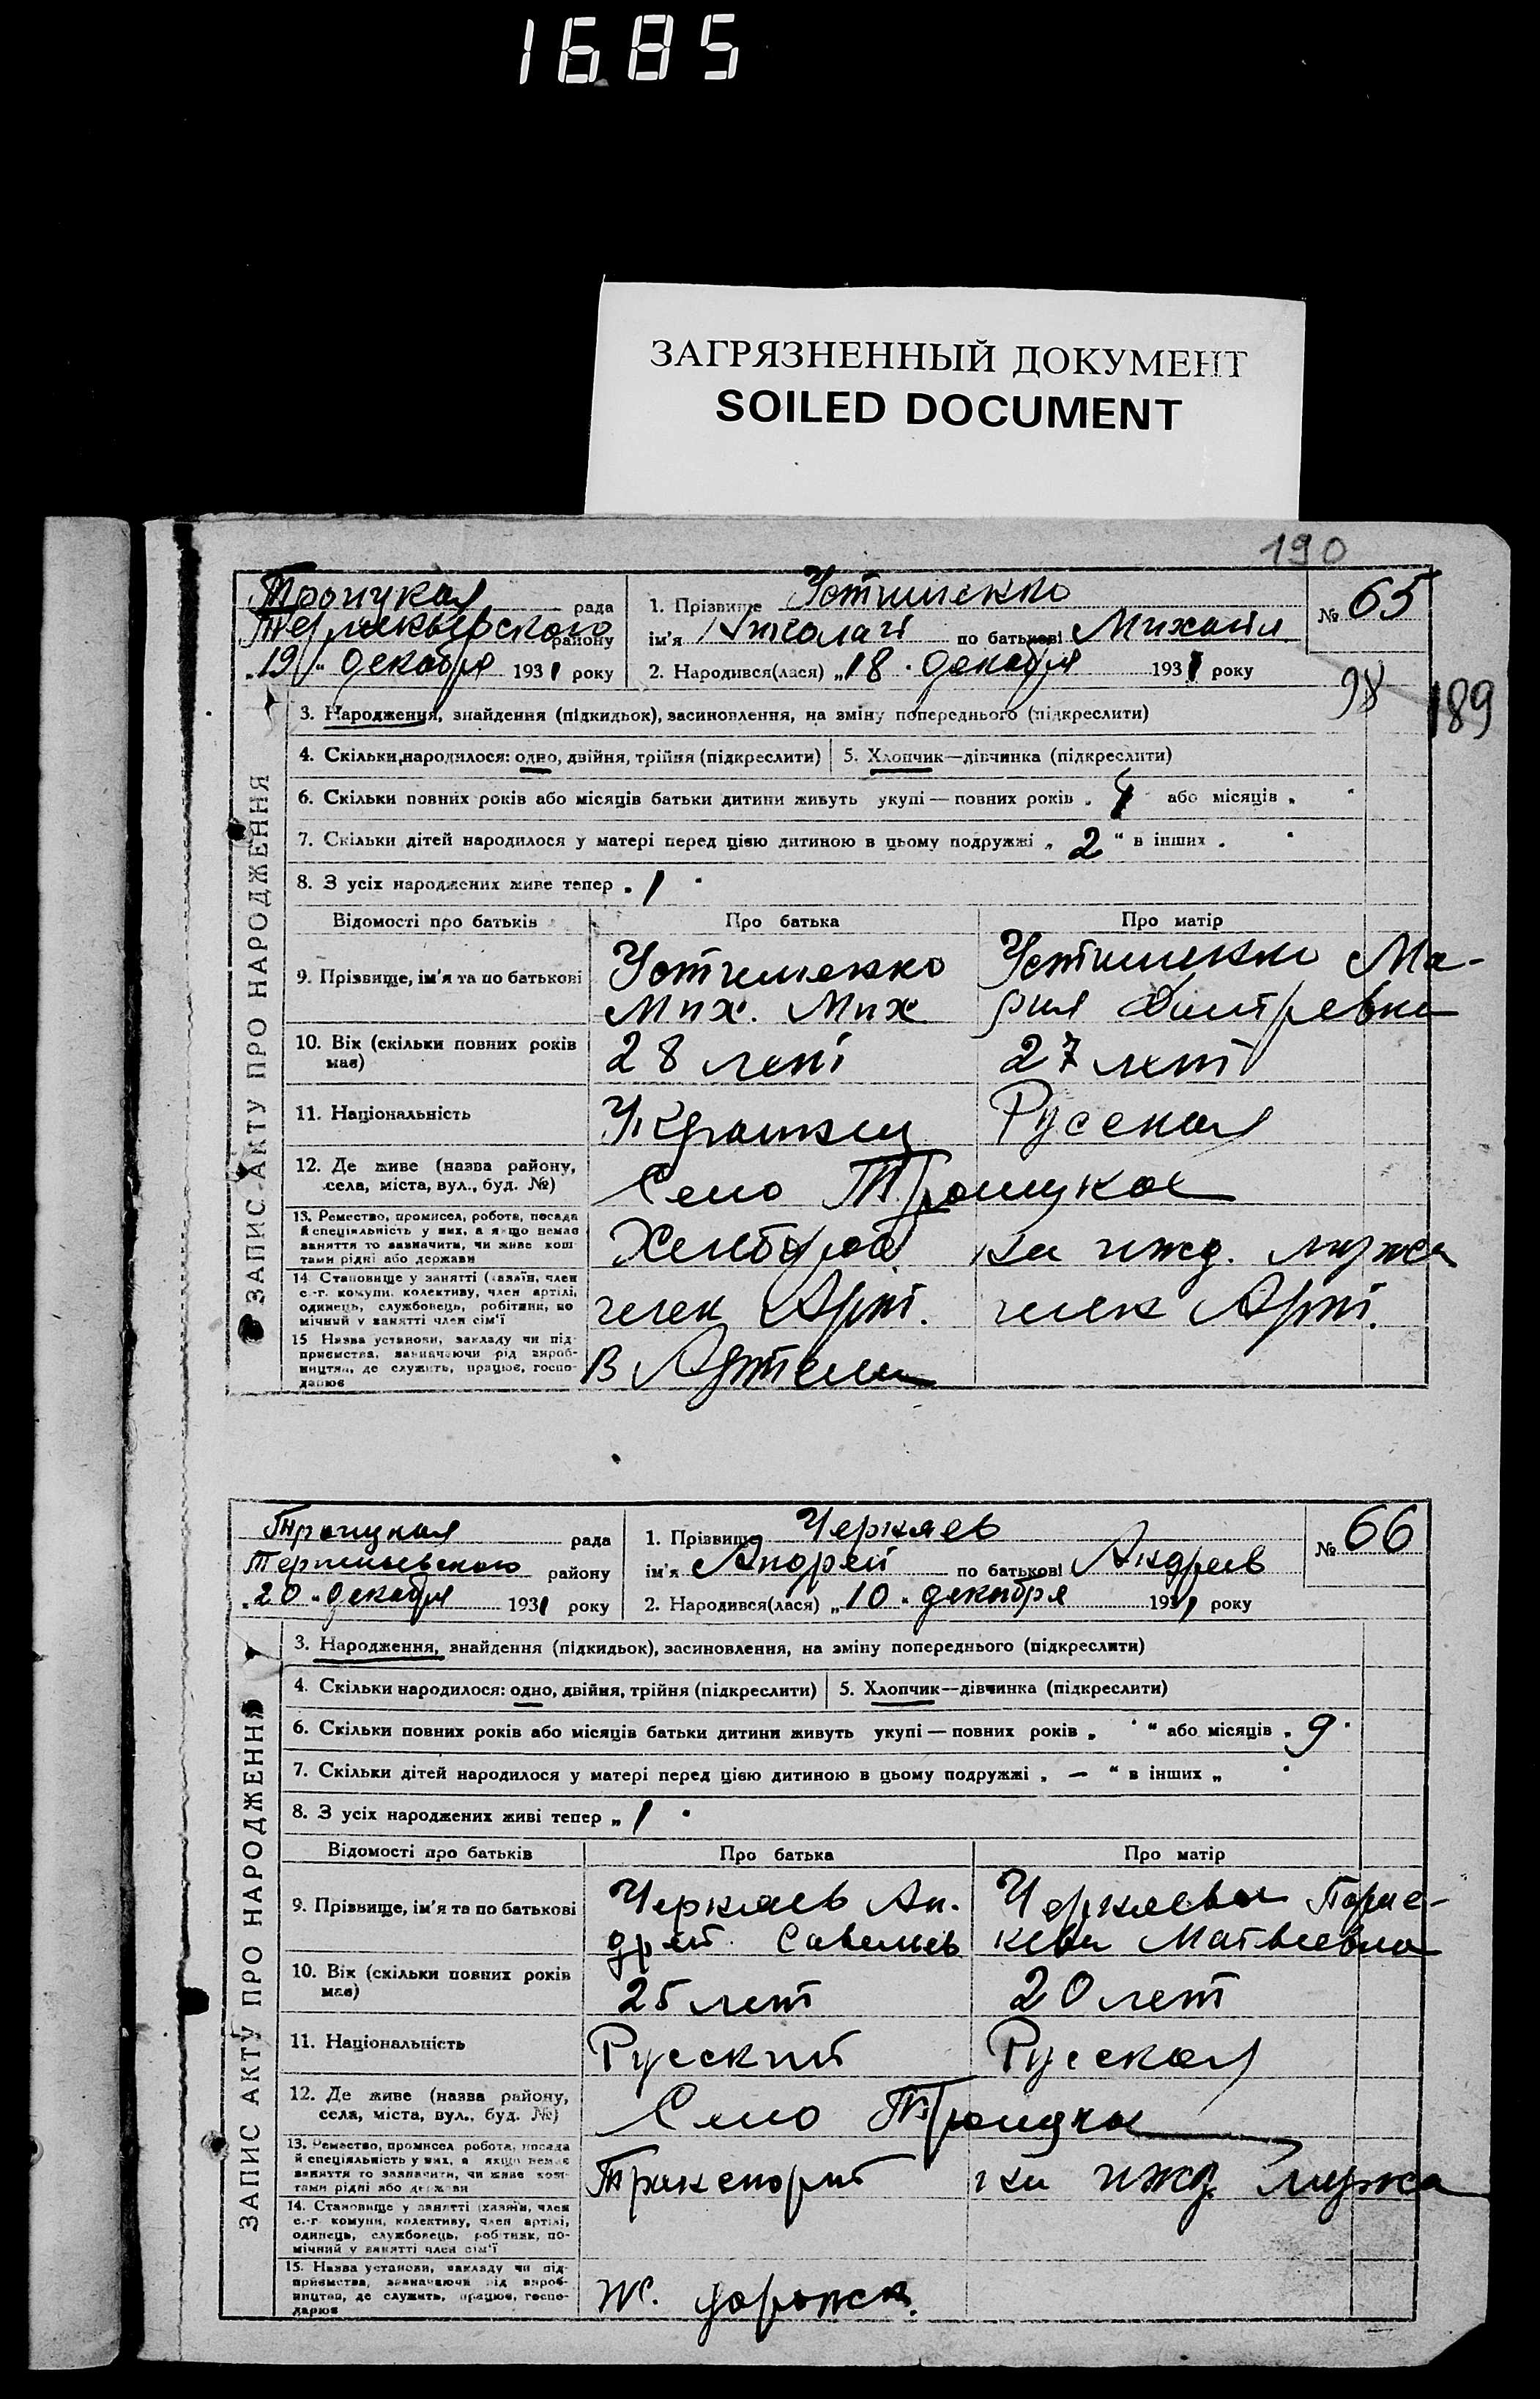 1685
ЗАГРЯЗНЕННЫЙ ДОКУМЕНТ
SOILED DOCUMENT
190
Троицкая рада
району
„19„ декабря 1931 року
1. Прізвище Устименко
ім'я Николай по батькові Михайл
2. Народився(лася) „18„ декабря 1931 року
№ 65
98
189
ЗАПИС АКТУ ПРО НАРОДЖЕННЯ
3. Народження, знайдення (підкидьок), засиновлення, на зміну попереднього (підкреслити)
4. Скільки народилося: одно, двійня, трійня (підкреслити) 5. Хлопчик—дівчинка (підкреслити)
6. Скільки повних років або місяців батьки дитини живуть укупі — повних років „ або місяців „
7. Скільки дітей народилося у матері перед цією дитиною в цьому подружжі „ 2 “ в інших „
8. З усіх народжених живе тепер „ 1
Відомості про батьків Про батька Про матір
9. Прізвище, ім'я та по батькові
Устименко Устименко Ма-
Мих. Мих рия Дмитревна
10. Вік (скільки повних років має) 28 лет 27 лет
11. Національність Украинец Русская
12. Де живе (назва району,
села, міста, вул., буд. №) Село Троицкое
13. Ремество, промисел, робота, посада
й спеціяльність у них, а якщо немає
заняття то зазначити, чи живе кош-
тами рідні або держави
Хлебороб на ижд. мужа
14. Становище у занятті (хазяїн, член
с.-г. комуни, колективу, член артілі,
одинець, службовець, робітник, по-
мічний у занятті член сім'ї
член Арт. член Арт.
15 Назва установи, закладу чи під-
приємства, зазначаючи рід вироб-
ництва, де служить, працює, госпо-
дарює
В Артели
Троицкая рада
району
„20„ декабря 1931 року
1. Прізвище Черкаев
ім'я Андрей по батькові Андреев
2. Народився(лася) „10„ декабря 1931 року
№ 66
ЗАПИС АКТУ ПРО НАРОДЖЕННЯ
3. Народження, знайдення (підкидьок), засиновлення, на зміну попереднього (підкреслити)
4. Скільки народилося: одно, двійня, трійня (підкреслити) 5. Хлопчик—дівчинка (підкреслити)
6. Скільки повних років або місяців батьки дитини живуть укупі — повних років „ “ або місяців „ 9
7. Скільки дітей народилося у матері перед цією дитиною в цьому подружжі „ — “ в інших „
8. З усіх народжених живі тепер „ 1
Відомості про батьків Про батька Про матір
9. Прізвище, ім'я та по батькові
Черкаев Ан- Черкаева
дрей Савельев Матвеевна
10. Вік (скільки повних років має) 25 лет 20 лет
11. Національність Русский Русская
12. Де живе (назва району,
села, міста, вул., буд. №) Село
13. Ремество, промисел робота, посада
й спеціяльність у них, а якщо немає
заняття то зазначити, чи живе кош-
тами рідні або держави
Транспорт на ижд. мужа
14. Становище у занятті (хазяїн, член
с.-г комуни, колективу, член артілі,
одинець, службовець, робітник, по-
мічний у занятті член сім'ї
15. Назва установи, закладу чи під-
приємства, зазначаючи рід вироб-
ництва, де служить, працює, госпо-
дарює
Ж.